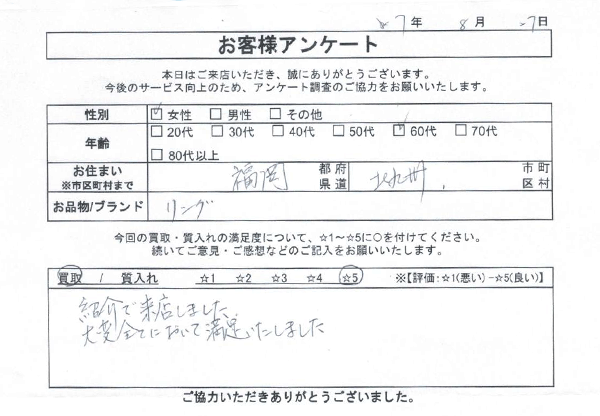 7年 8月 27日
お客様アンケート
本日はご来店いただき、誠にありがとうございます。
今後のサービス向上のため、アンケート調査のご協力をお願いいたします。
性別 ☑ 女性 □ 男性 □ その他
年齢 □ 20代 □ 30代 □ 40代 □ 50代 ☑ 60代 □ 70代
□ 80代以上
お住まい ※市区町村まで 福岡 都府県道 北九州 市町区村
お品物/ブランド リング
今回の買取・質入れの満足度について、☆1~☆5に○を付けてください。
続いてご意見・ご感想などのご記入をお願いいたします。
買取 / 質入れ ☆1 ☆2 ☆3 ☆4 ☆5 ※【評価:☆1(悪い)-☆5(良い)】
紹介で来店しました
大変全てにおいて満足いたしました
ご協力いただきありがとうございました。